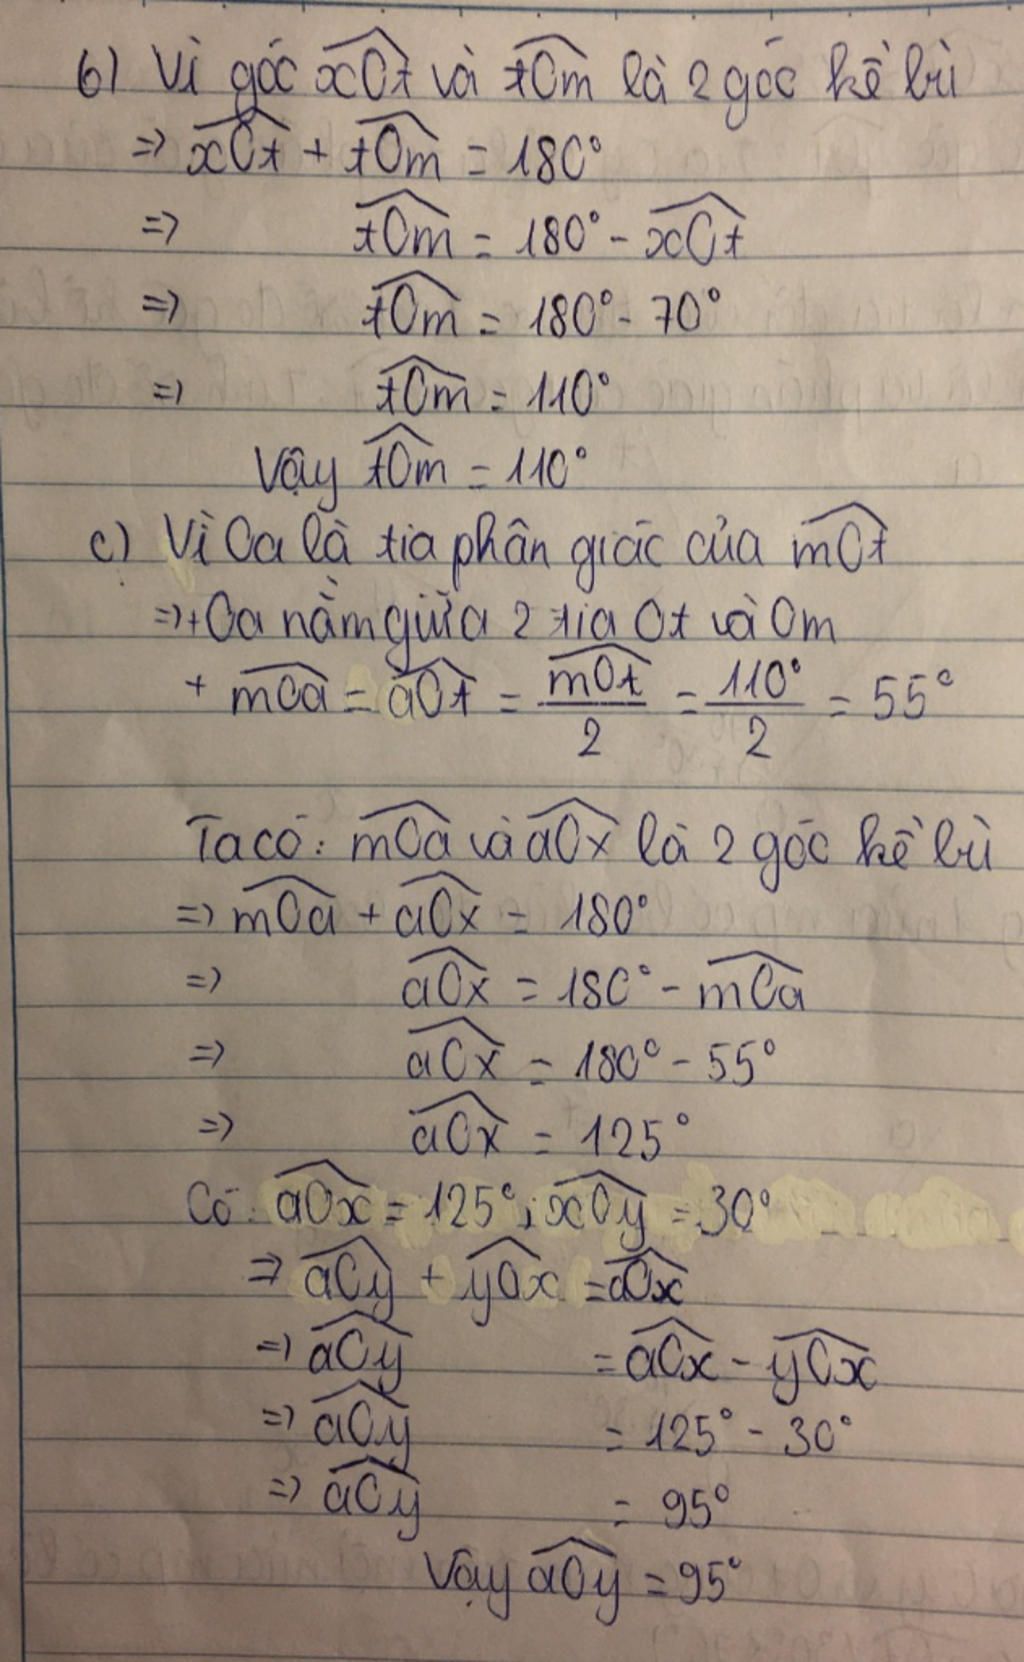 b) Vì góc xOt và tOm là 2 góc kề bù
=> xOt + tOm = 180°
=> tOm = 180° - xOt
=> tOm = 180° - 70°
=> tOm = 110°
Vậy tOm = 110°
c) Vì Oa là tia phân giác của mOt
=> + Oa nằm giữa 2 tia Ot và Om
+ mOa = aOt = mOt/2 = 110°/2 = 55°
Ta có: mOa và aOx là 2 góc kề bù
=> mOa + aOx = 180°
=> aOx = 180° - mOa
=> aOx = 180° - 55°
=> aOx = 125°
Có: aOx = 125°; xOy = 30°
=> aOy + yOx = aOx
=> aOy = aOx - yOx
=> aOy = 125° - 30°
=> aOy = 95°
Vậy aOy = 95°